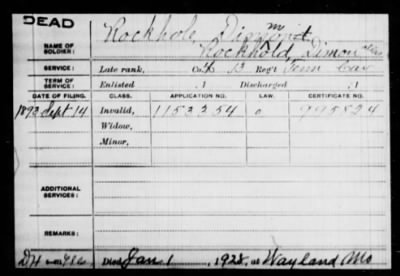 DEAD
NAME OF SOLDIER: Rockhole, Dimmit
Rockhold, Dimon alias
SERVICE: Late rank, Co. B Reg't Tenn Cav
TERM OF SERVICE: Enlisted , 1 Discharged , 1
DATE OF FILING. CLASS. APPLICATION NO. LAW. CERTIFICATE NO.
1893 Sept 14 Invalid, 1153254 995824
Widow,
Minor,
ADDITIONAL SERVICES:
REMARKS:
Died Jan 1, 1928, at Wayland Mo